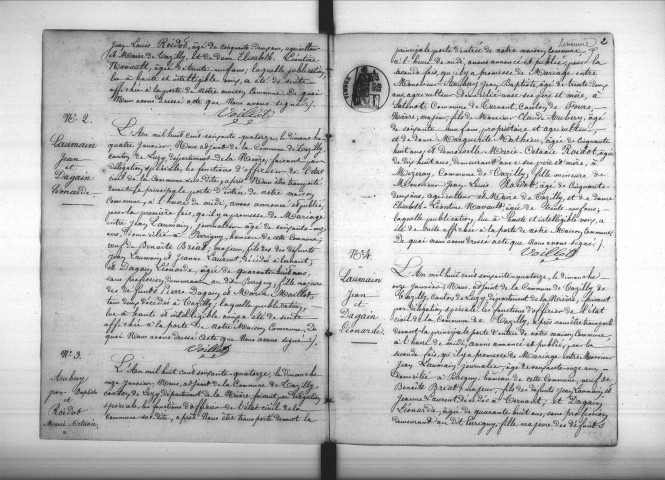 Jean Louis Roidot, âgé de cinquante deux ans, agriculteur
et Maire de Tazilly, et de dame Elisabeth Léontine
Navault, âgée de trente neuf ans; laquelle publication,
lue à haute et intelligible voix, a été de suite
affichée à la porte de notre maison commune. De quoi
Nous avons dressé acte que Nous avons signé ./.
Voillot
N°. 2.
Laumain
Jean
et
Dagain
Léonarde
L'An mil huit cent soixante quatorze, le dimanche
quatre janvier, Nous, adjoint de la Commune de Tazilly
canton de Luzy, département de la Nièvre, faisant par
délégation spéciale, les fonctions d'officier de l'état
civil de la Commune susdite, après Nous être transporté
devant la principale porte d'entrée de notre maison
Commune, à l'heure de midi, avons annoncé et publié
pour la première fois, qu'il y a promesse de Mariage
entre Jean Laumain, journalier, âgé de soixante-onze
ans, domicilié à hameau de cette Commune,
veuf de Benoîte Briat, majeur, fils des défunts
Jean Laumain et Jeanne Laurent, décédés à
et Dagain Léonarde, âgée de quarante huit ans,
sans profession, demeurant au dit fille majeure
de défunts Pierre Dagain, et Marie Maillot,
tous deux décédés à Tazilly, laquelle publication
lue à haute et intelligible voix, a été de suite
affichée à la porte de Notre Maison Commune, De
quoi Nous avons dressé acte que Nous avons signé ./.
Voillot
N°. 3.
Aubery
Jean-Baptiste
et
Roidot
Marie Célanie.
L'An mil huit cent soixante quatorze, le dimanche
onze janvier, Nous, adjoint de la Commune de Tazilly,
canton de Luzy, Département de la Nièvre, faisant par délégation
spéciale, les fonctions d'officier de l'état civil de la
Commune susdite, après Nous être transporté devant la
2
principale porte d'entrée de notre maison, commune
à l'heure de midi, avons annoncé et publié, pour la
seconde fois, qu'il y a promesse de Mariage entre
Monsieur Aubery Jean Baptiste, âgé de trente deux
ans, agriculteur, domicilié avec ses père et mère, à
Commune de Ternant, Canton de Fours,
Nièvre, majeur, fils de Monsieur Claude Aubery, âgé
de soixante neuf ans, propriétaire et agriculteur,
et de dame Marguerite Mathieu, âgée de cinquante
huit ans, et demoiselle Marie Célanie Roidot, âgée
de dix huit ans, demeurant avec ses père et mère, à
Mizeray, Commune de Tazilly, fille mineure de
Monsieur Jean Louis Roidot, âgé de Cinquante-
deux ans, agriculteur et Maire de Tazilly, et de dame
Elisabeth Léontine Navault, âgée de trente-neuf ans;
laquelle publication, lue à haute et intelligible voix, a
été de suite affichée à la porte de notre Maison, Commune,
De quoi nous avons dressé acte que Nous avons signé ./.
Voillot
N°. 4.
Laumain
Jean
et
Dagain
Léonarde.
L'An mil huit cent soixante-quatorze, le dimanche
onze janvier, Nous, adjoint de la Commune de Tazilly
Canton de Luzy, Département de la Nièvre, faisant
par délégation spéciale, les fonctions d'officier de l'état
civil de la Commune de Tazilly, après nous être transporté
devant la principale porte d'entrée de notre maison, commune,
à l'heure de midi, avons annoncé et publié, pour la
seconde fois, qu'il y a promesse de Mariage entre Monsieur
Jean Laumain, journalier, âgé de soixante-onze ans,
domicilié à hameau de cette Commune, veuf de
Benoîte Briat, majeur, fils des défunts Jean Laumain, et
Jeanne Laurent, décédés à Ternant, et Dagain,
Léonarde, âgée de quarante huit ans, sans profession
demeurant au dit fille majeure des défunts